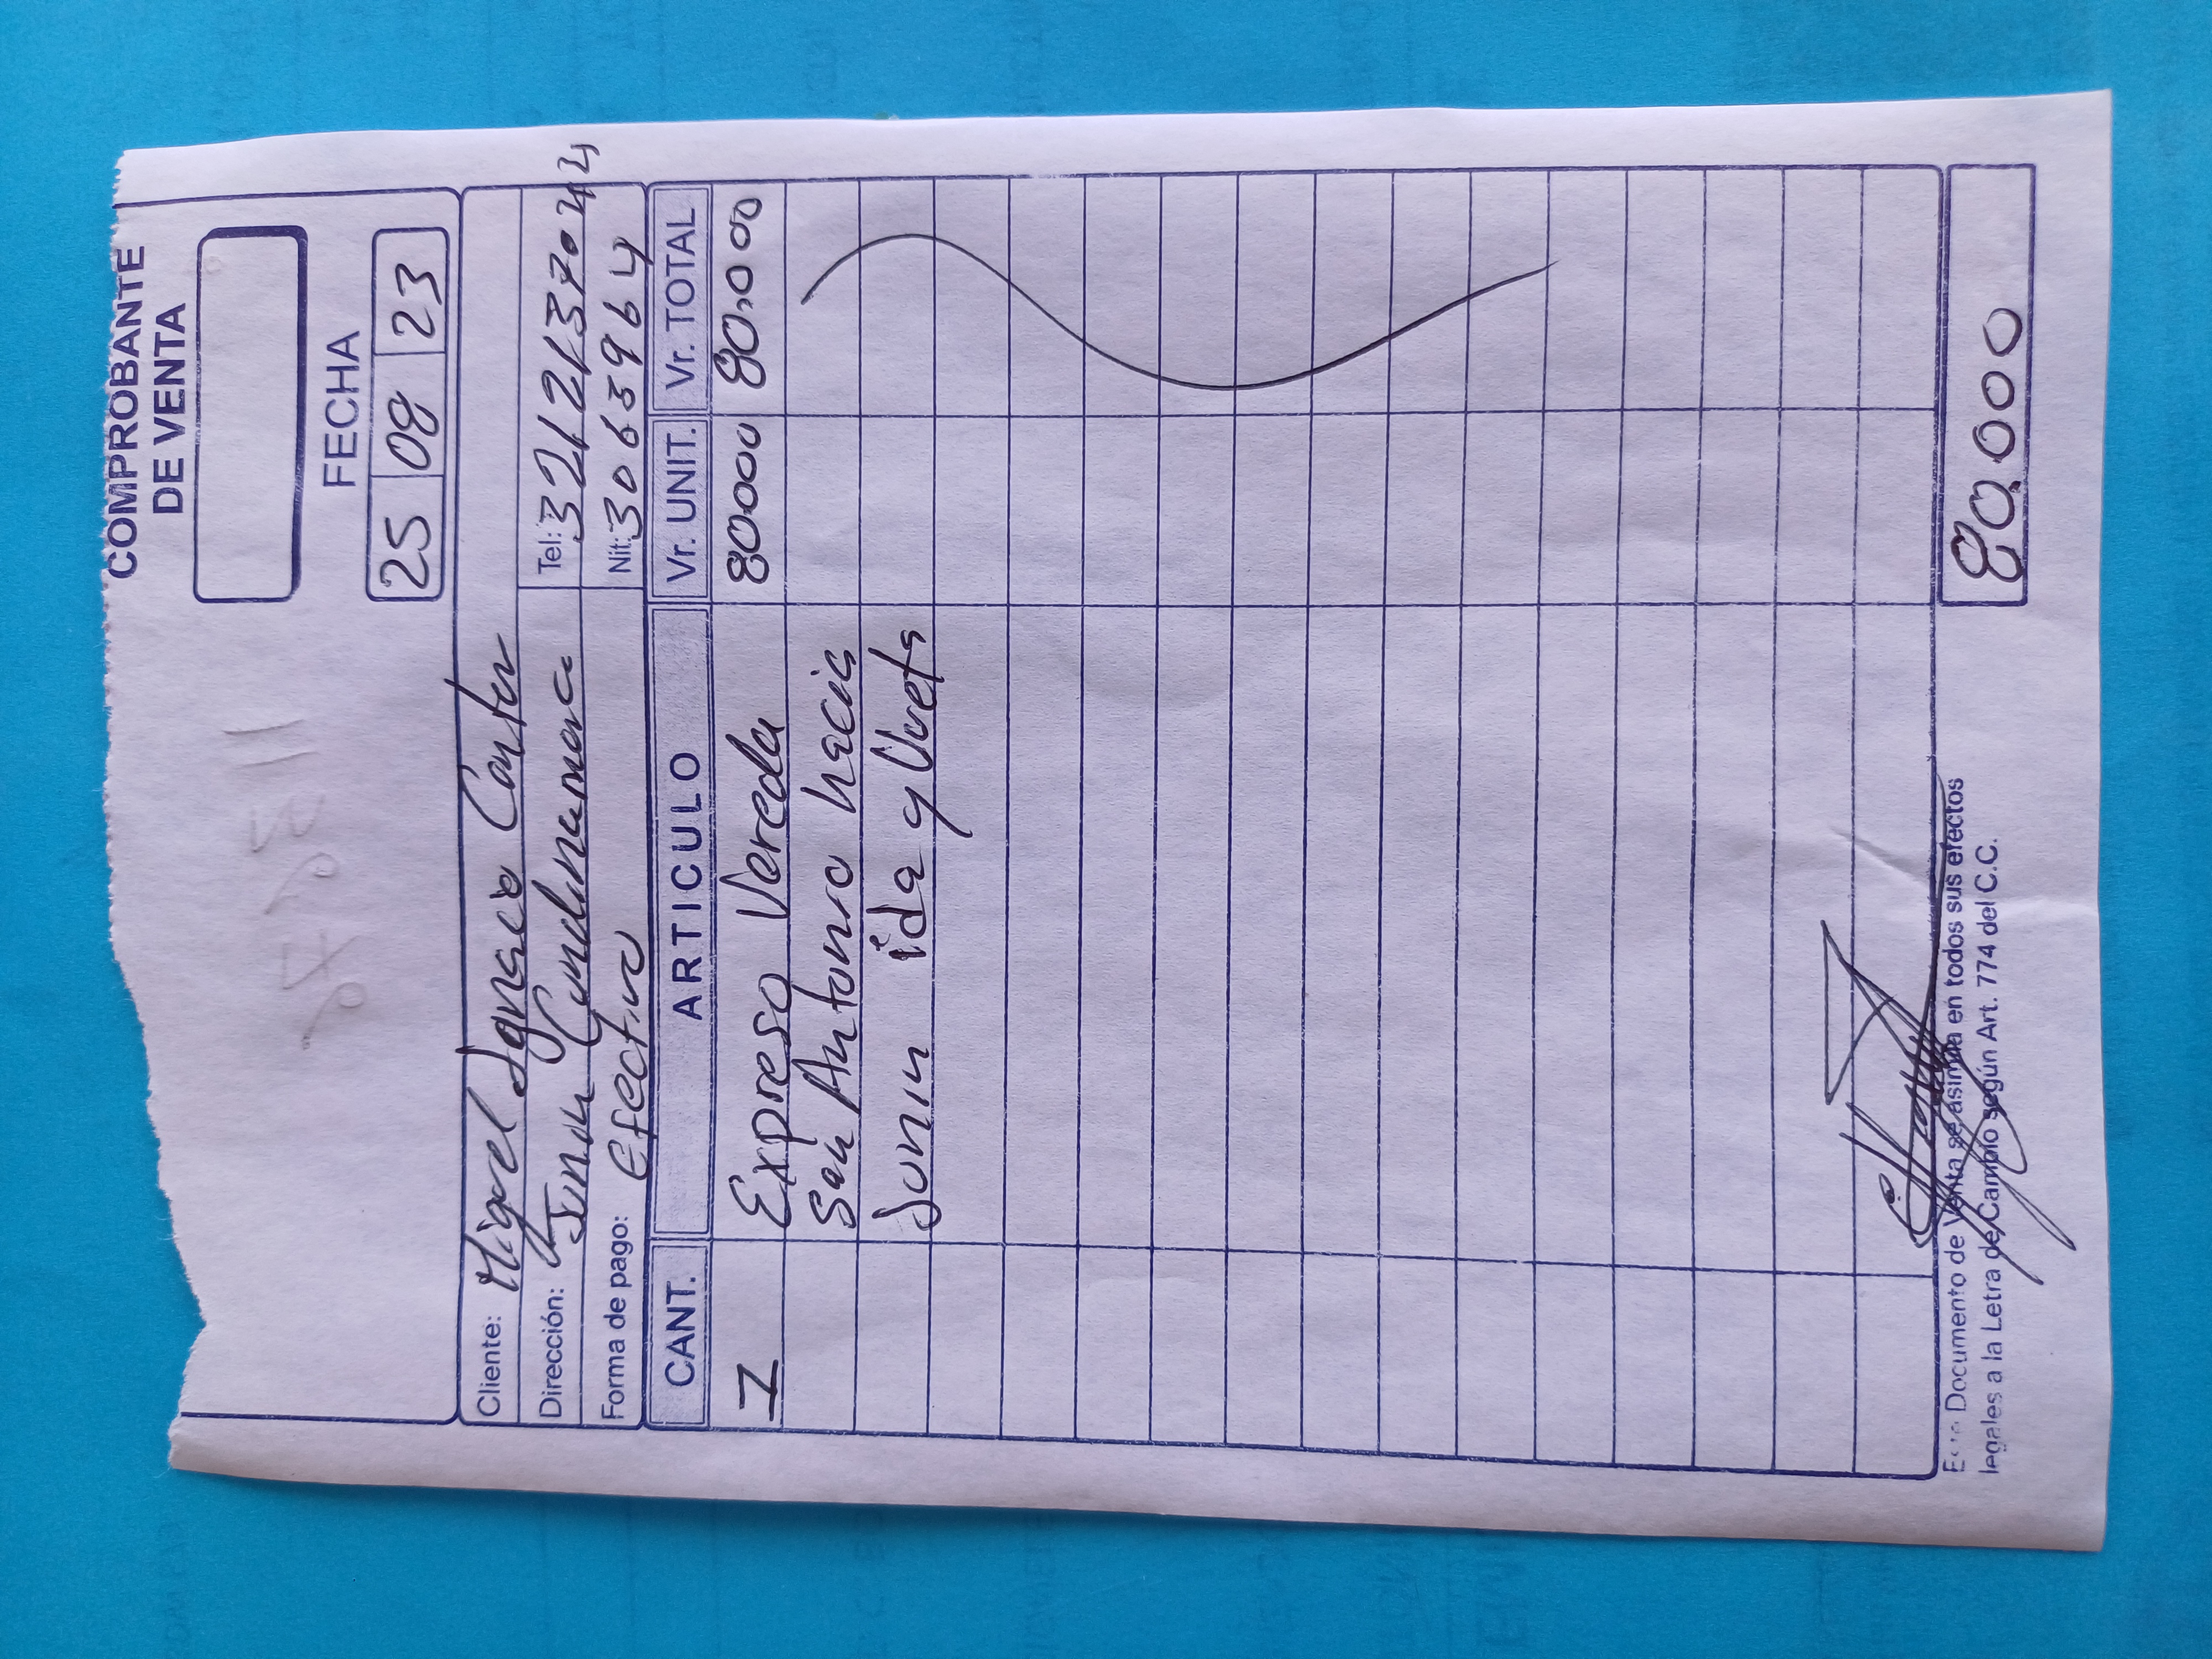 COMPROBANTE
DE VENTA
FECHA
25 08 23
Cliente: Miguel Ignacio
Dirección: Junin Cundinamarca Tel: 3212137044
Forma de pago: Efectivo Nit: 3063964
CANT. ARTICULO Vr. UNIT. Vr. TOTAL
1 Expreso Vereda 80000 80.000
San Antonio hacia
Junin ida y Vuelta
80.000
Este Documento de Venta se asimila en todos sus efectos
legales a la Letra de Cambio según Art. 774 del C.C.